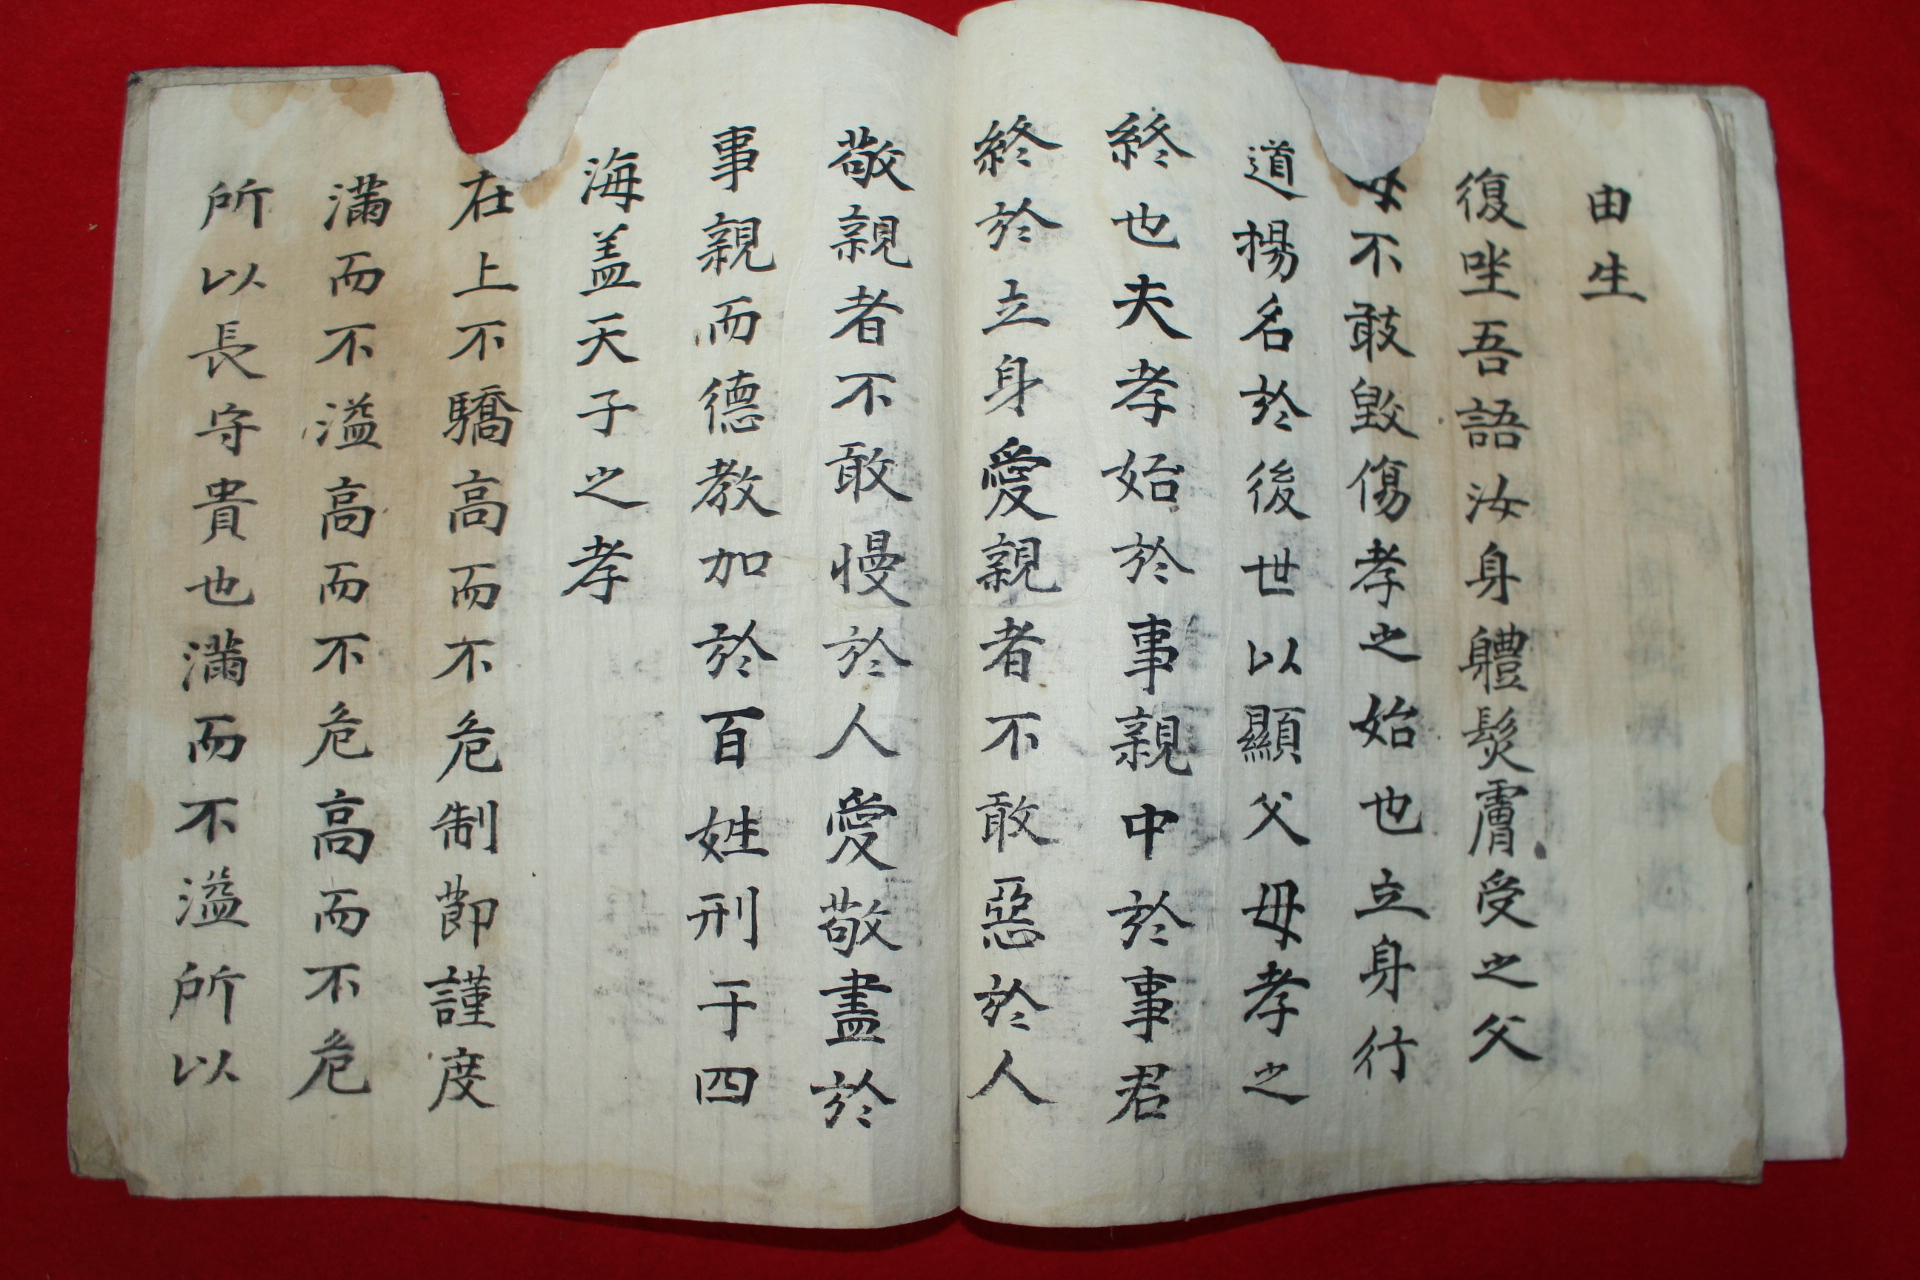 由生
復坐吾語汝身軆髮膚受之父
母不敢毀傷孝之始也立身行
道揚名於後世以顯父母孝之
終也夫孝始於事親中於事君
終於立身愛親者不敢惡於人
敬親者不敢慢於人愛敬盡於
事親而德教加於百姓刑于四
海盖天子之孝
在上不驕高而不危制節謹度
滿而不溢高而不危高而不危
所以長守貴也滿而不溢所以